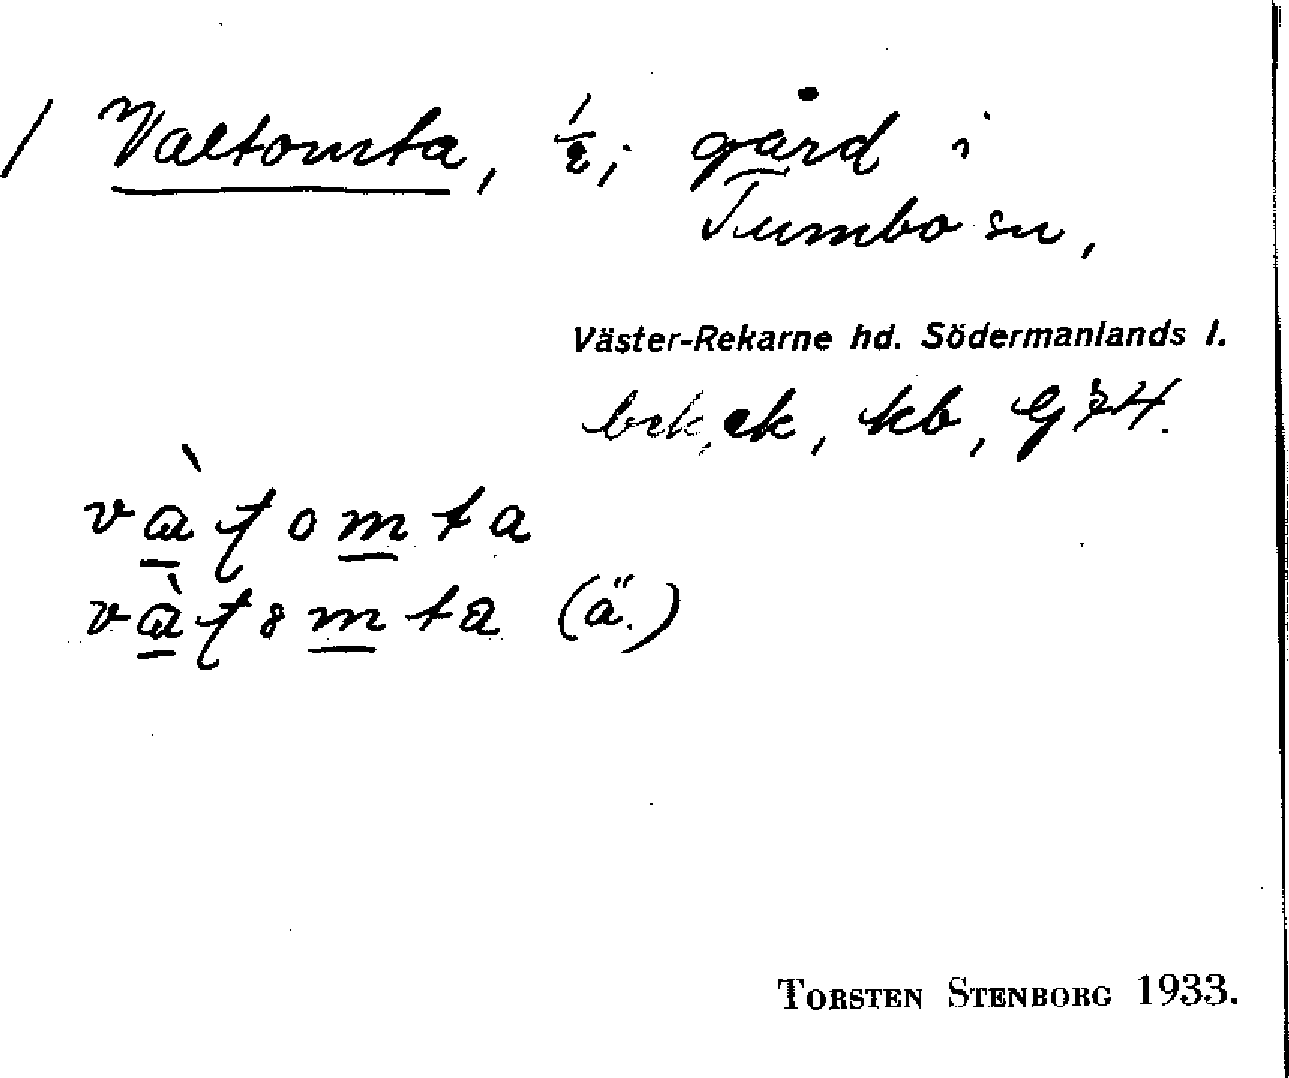 / Valtomta, ½; gård i
Tumbo sn,
Väster-Rekarne hd. Södermanlands l.
brk, ek, kb, G74.
vàʈomta
vàʈ8mta (ä.)
TORSTEN STENBORG 1933.